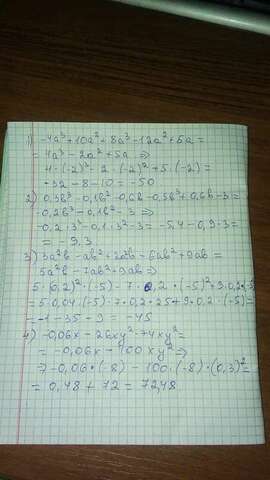 1) -4a³+10a²+8a³-12a²+5a=
=4a³-2a²+5a ⇒
4·(-2)³-2·(-2)²+5·(-2)=
-32-8-10=-50
2) 0,3b³-0,1b²-0,6b-0,5b³+0,6b-3=
-0,2b³-0,1b²-3 ⇒
-0,2·3³-0,1·3²-3=-5,4-0,9-3=
=-9,3
3) 3a²b-ab²+2a²b-6ab²+9ab=
5a²b-7ab²+9ab ⇒
5·(0,2)²·(-5)-7·0,2·(-5)²+9·0,2·(-5)=
=5·0,04·(-5)-7·0,2·25+9·0,2·(-5)=
=-1-35-9=-45
4) -0,06x-26xy²-74xy²=
=-0,06x-100xy² ⇒
⇒-0,06·(-8)-100·(-8)·(0,3)²=
=0,48+72=72,48